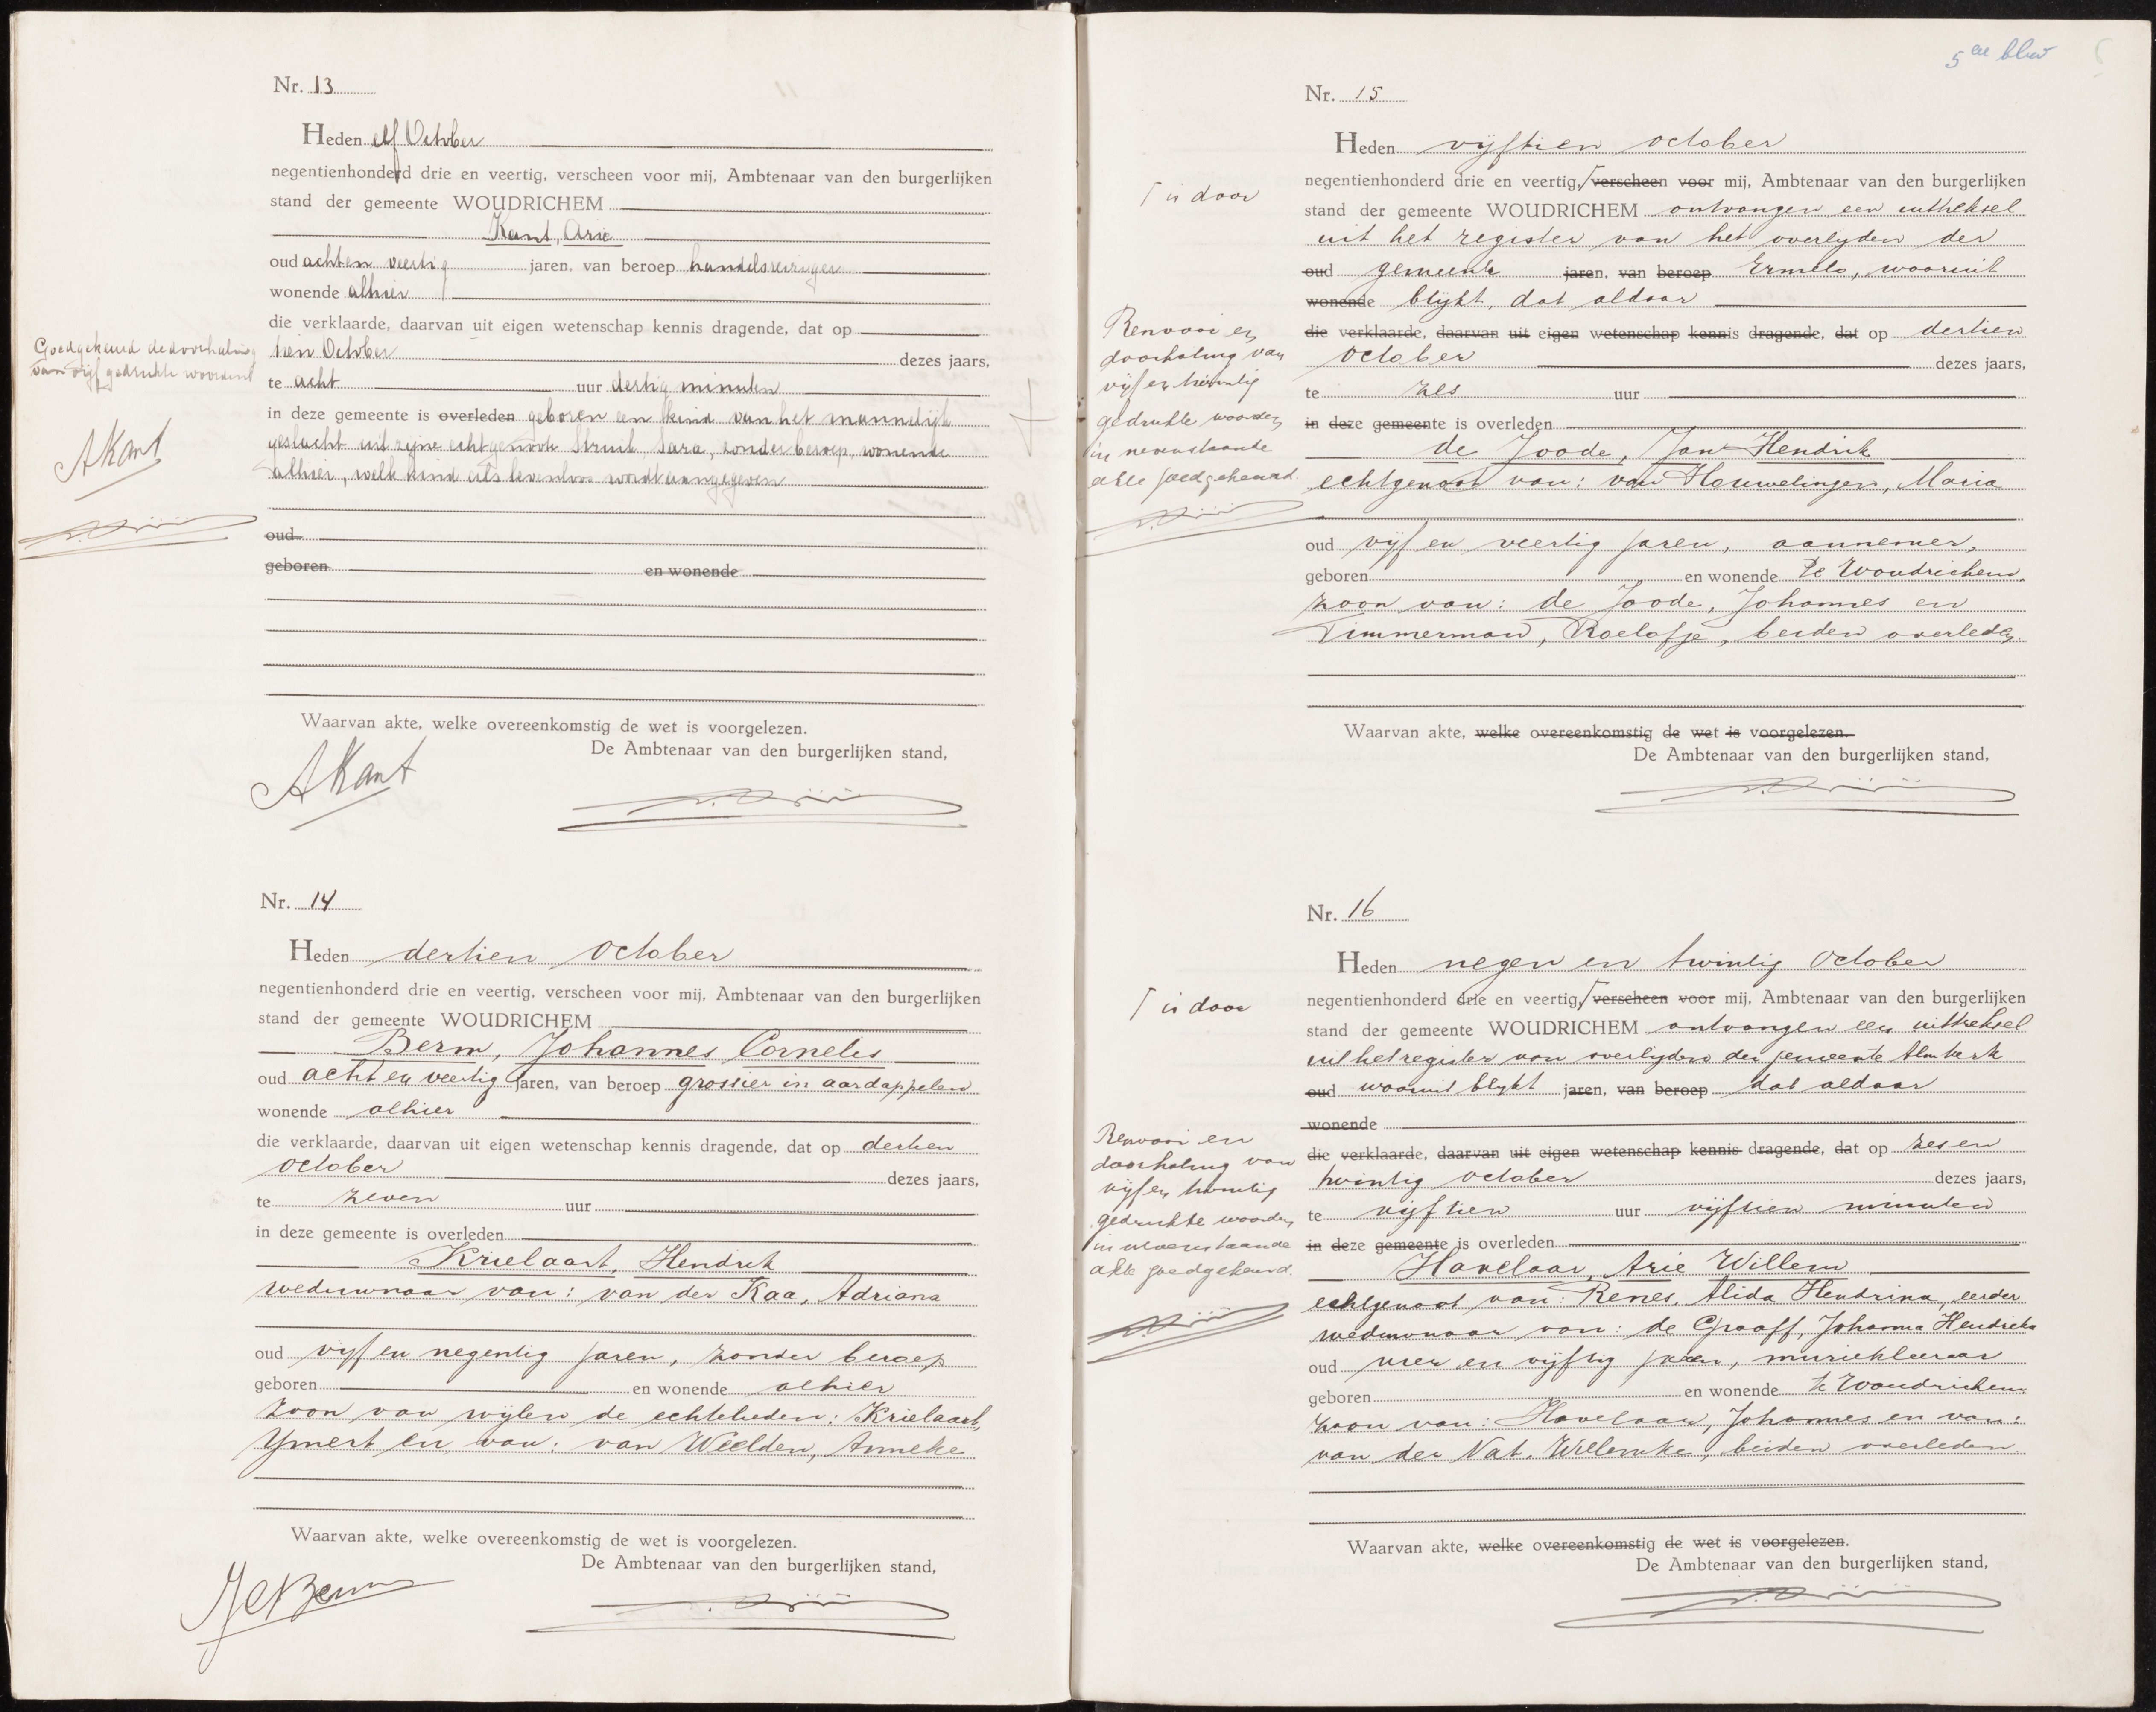 Nr. 13
Heden elf October
negentienhonderd drie en veertig, verscheen voor mij, Ambtenaar van den burgerlijken
stand der gemeente WOUDRICHEM
Kant, Arie
oud acht en veertig jaren, van beroep handelsreiziger
wonende alhier
die verklaarde, daarvan uit eigen wetenschap kennis dragende, dat op
tien October dezes jaars,
te acht uur dertig minuten
in deze gemeente is overleden geboren een kind van het mannelijk
geslacht uit zijne echtgenoote Struik Sara, zonder beroep, wonende
alhier, welk kind als levenloos wordt aangegeven
oud
geboren en wonende
Waarvan akte, welke overeenkomstig de wet is voorgelezen.
De Ambtenaar van den burgerlijken stand,
AKant
Goedgekeurd de doorhaling
van vijf gedrukte woorden
AKant
Nr. 14
Heden dertien October
negentienhonderd drie en veertig, verscheen voor mij, Ambtenaar van den burgerlijken
stand der gemeente WOUDRICHEM
Berm, Johannes Cornelis
oud acht en veertig jaren, van beroep grossier in aardappelen
wonende alhier
die verklaarde, daarvan uit eigen wetenschap kennis dragende, dat op dertien
October dezes jaars,
te zeven uur
in deze gemeente is overleden
Krielaart, Hendrik
weduwnaar van: van der Kaa, Adriana
oud vijf en negentig jaren, zonder beroep
geboren en wonende alhier
zoon van wijlen de echtelieden: Krielaart,
Ymert en van: van Weelden, Anneke
Waarvan akte, welke overeenkomstig de wet is voorgelezen.
De Ambtenaar van den burgerlijken stand,
5de blad
Nr. 15
Heden vijftien october
negentienhonderd drie en veertig, verscheen voor mij, Ambtenaar van den burgerlijken
is door
stand der gemeente WOUDRICHEM ontvangen een uittreksel
uit het register van het overlijden der
oud gemeente jaren, van beroep Ermelo, waaruit
wonende blijkt, dat aldaar
die verklaarde, daarvan uit eigen wetenschap kennis dragende, dat op dertien
October dezes jaars,
te zes uur
in deze gemeente is overleden
de Joode, Jan Hendrik
echtgenoot van: van Houwelingen, Maria
oud vijf en veertig jaren, aannemer,
geboren en wonende te Woudrichem,
zoon van: de Joode, Johannes en
Timmerman, Roelofje, beiden overleden
Waarvan akte, welke overeenkomstig de wet is voorgelezen.
De Ambtenaar van den burgerlijken stand,
Renvooi en
doorhaling van
vijf en twintig
gedrukte woorden
in nevenstaande
akte goedgekeurd.
Nr. 16
Heden negen en twintig October
negentienhonderd drie en veertig, verscheen voor mij, Ambtenaar van den burgerlijken
is door
stand der gemeente WOUDRICHEM ontvangen een uittreksel
uit het register van overlijden der gemeente Almkerk
oud waaruit blijkt jaren, van beroep dat aldaar
wonende
die verklaarde, daarvan uit eigen wetenschap kennis dragende, dat op zes en
twintig october dezes jaars,
te vijftien uur vijftien minuten
in deze gemeente is overleden
Havelaar, Arie Willem
echtgenoot van: Renes, Alida Hendrina, eerder
weduwnaar van: de Graaff, Johanna Hendrika
oud vier en vijftig jaren, muziekleeraar
geboren en wonende te Woudrichem
zoon van: Havelaar, Johannes en van:
van der Nat, Willemke, beiden overleden
Waarvan akte, welke overeenkomstig de wet is voorgelezen.
De Ambtenaar van den burgerlijken stand,
Renvooi en
doorhaling van
vijf en twintig
gedrukte woorden
in nevenstaande
akte goedgekeurd.